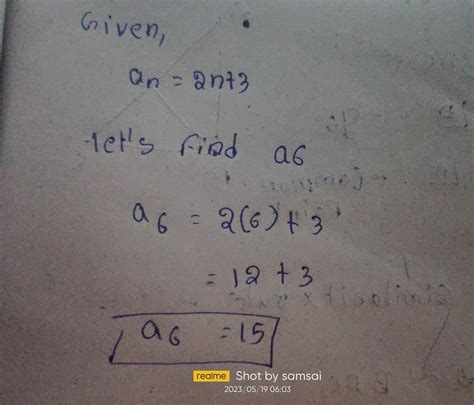 Given,
an = 2n+3
let's find a6
a6 = 2(6) + 3
= 12 + 3
a6 = 15
realme Shot by samsai
2023/05/19 06:03